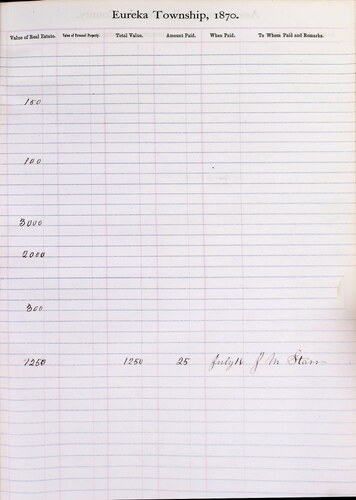 Eureka Township, 1870.
Value of Real Estate. Value of Personal Property. Total Value. Amount Paid. When Paid. To Whom Paid and Remarks.
150
100
3000
2000
300
1250 1250 25 July 18 J M Starr